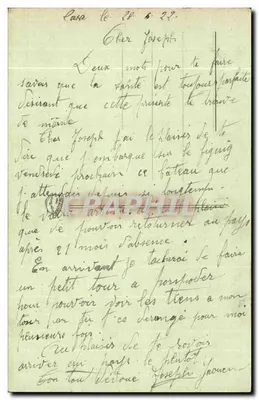 Casa le 28-6-22.
Cher Joseph
Deux mots pour te faire
savoir que la santé est toujours parfaite
désirant que cette présente te trouve
de même
Cher Joseph j'ai le plaisir de te
dire que j'embarque sur le figuig
vendredi prochain ce bateau que
j'attendais depuis si longtemps.
que de pouvoir retourner au pays
après 21 mois d'absence.
En arrivant je tacherai de faire
un petit tour a
pour pouvoir voir les tiens a mon
tour car tu t'es dérangé pour moi
plusieurs fois.
Au plaisir de te voir
arriver au pays le plutôt
Ton tout dévoué Joseph